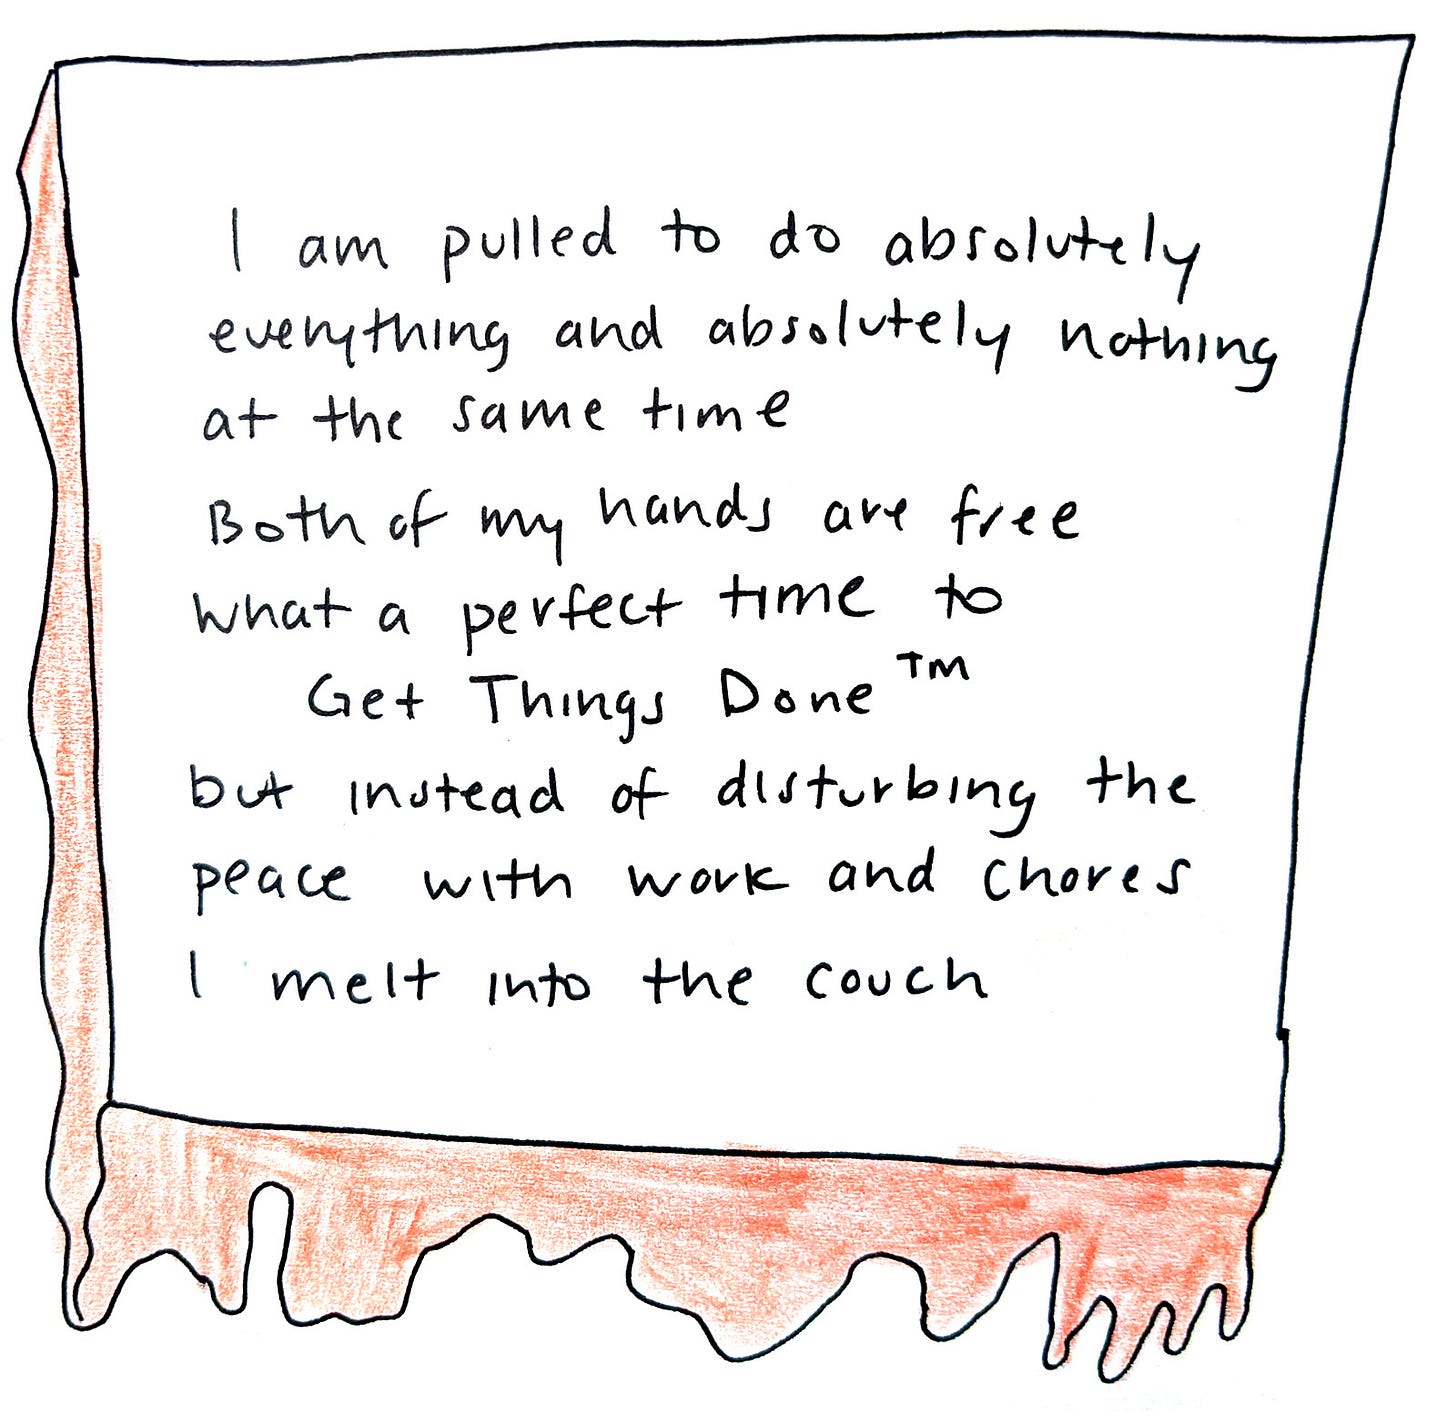 I am pulled to do absolutely
everything and absolutely nothing
at the same time
Both of my hands are free
what a perfect time to
Get Things Done™
but instead of disturbing the
peace with work and chores
I melt into the couch